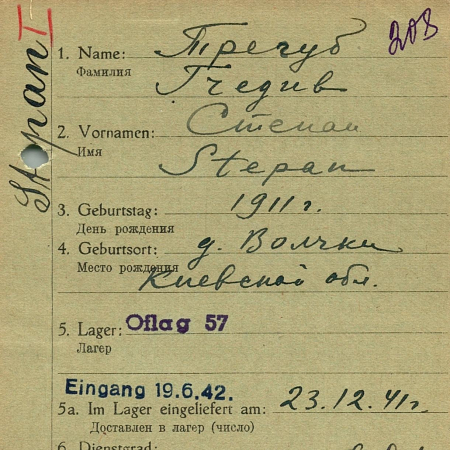 203
Stepan I
1. Name: Трегуб
Фамилия
2. Vornamen: Степан
Имя
Stepan
3. Geburtstag: 1911 г.
День рождения
4. Geburtsort: д. Волчки
Место рождения Киевской обл.
5. Lager: Oflag 57
Лагер
Eingang 19.6.42.
5a. Im Lager eingeliefert am: 23.12.41 г.
Доставлен в лагер (число)
6. Dienstgrad: